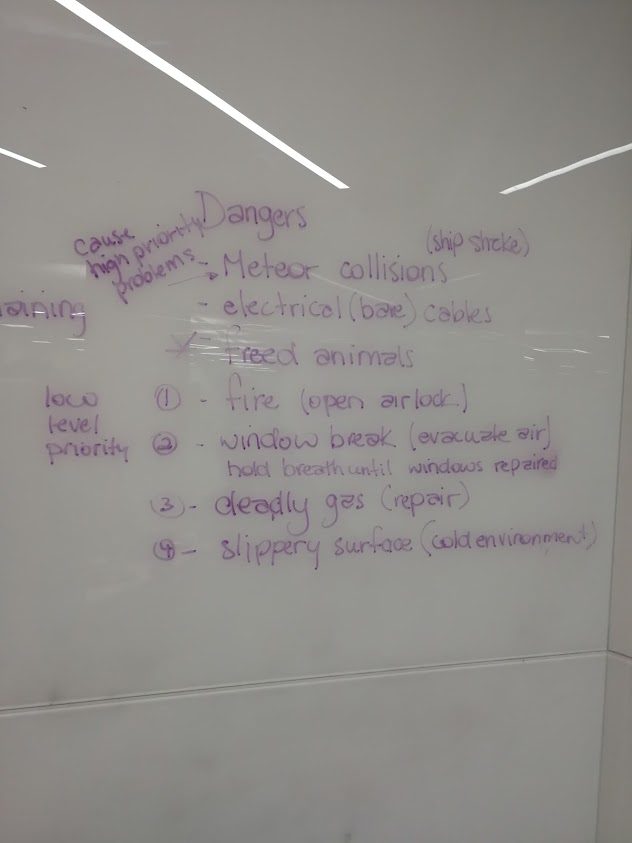 Dangers
cause
high priority
problems
(ship shake)
- Meteor collisions
aining
- electrical (bare) cables
- freed animals
low
level
priority
① - fire (open airlock)
② - window break (evacuate air)
hold breath until windows repaired
③ - deadly gas (repair)
④ - slippery surface (cold environment)